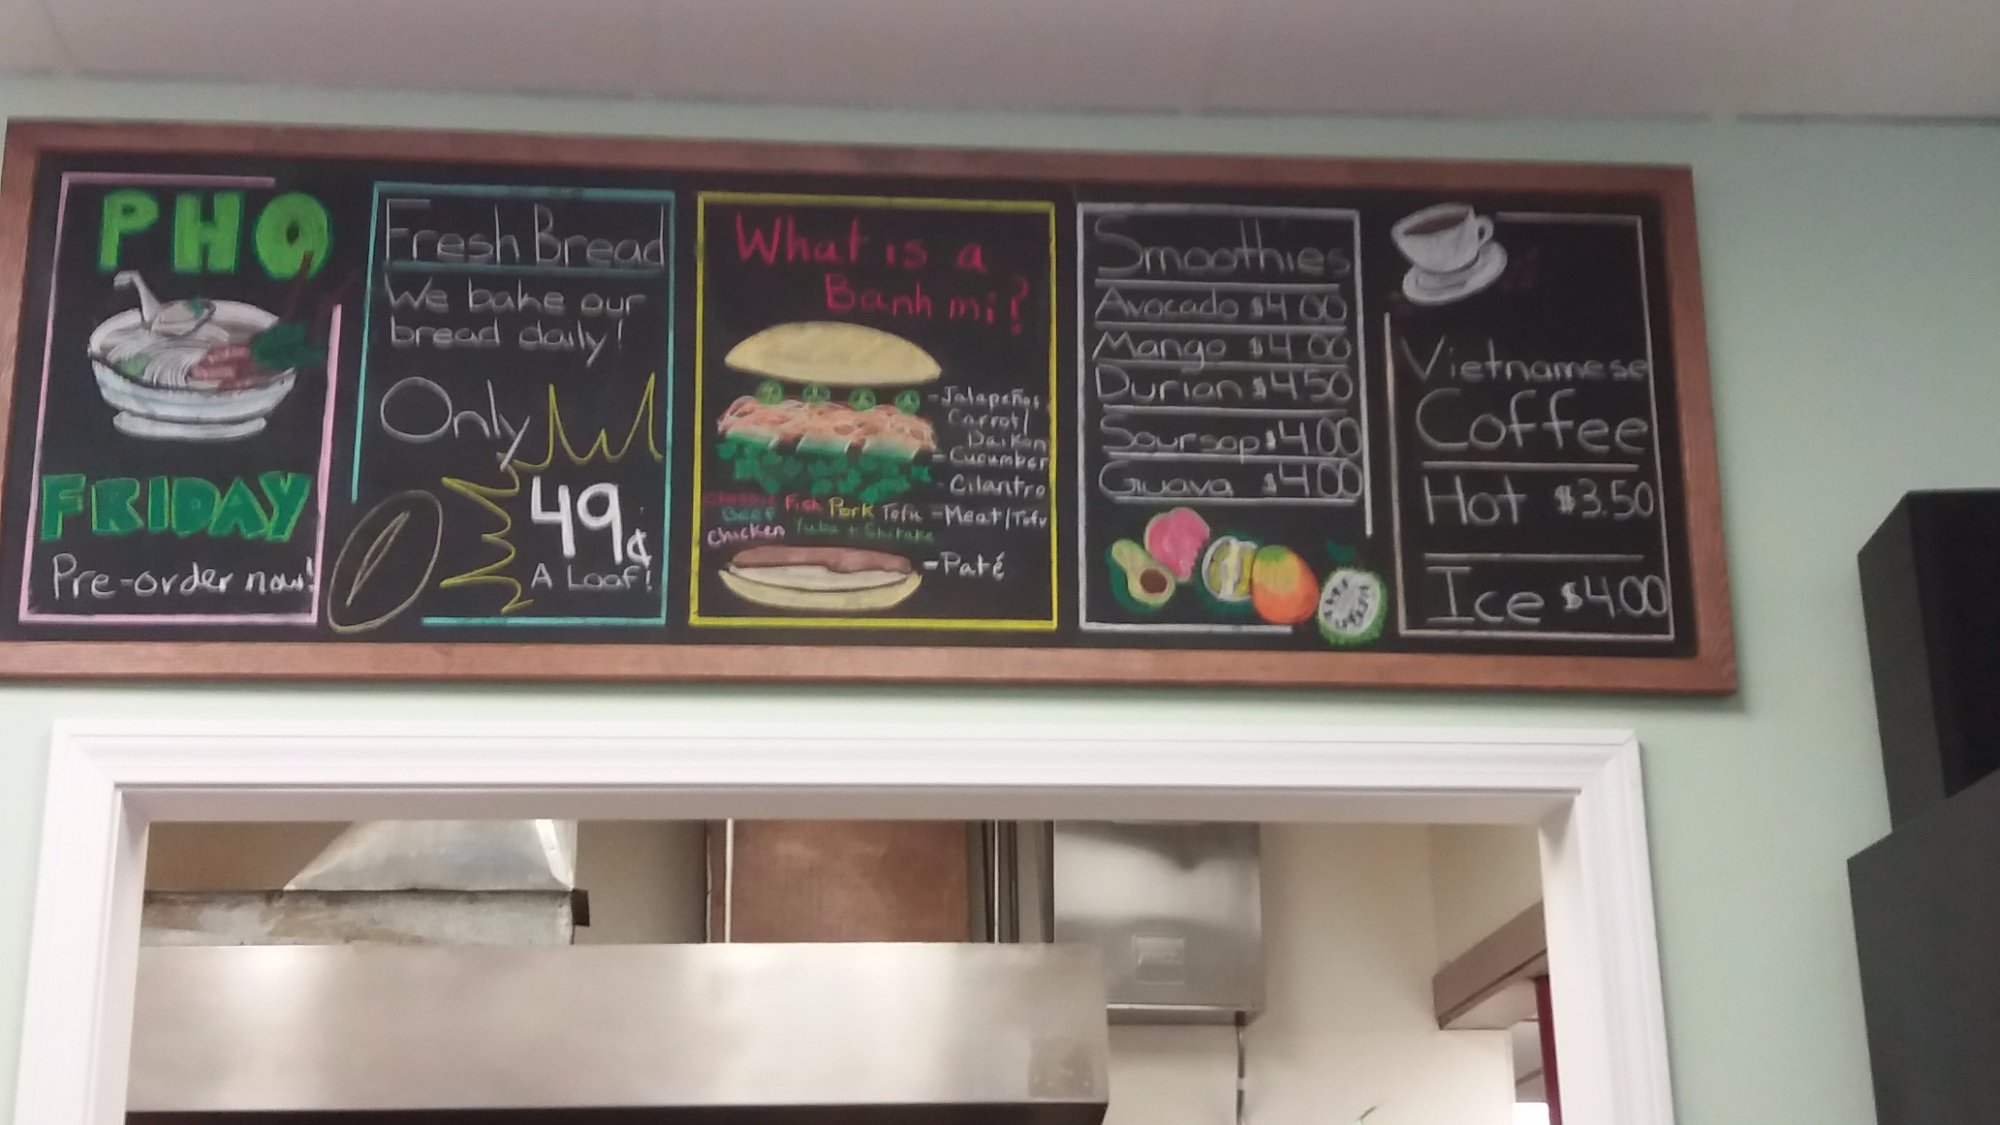 PHO
FRIDAY
Pre-order now!
Fresh Bread
We bake our
bread daily!
Only
49¢
A Loaf!
What is a
Banh mi?
-Jalapeños
Carrot/
Daikon
-Cucumber
-Cilantro
-Meat/Tofu
Classic Fish Pork Tofu
Beef
Chicken Yuba + Shitake
-Paté
Smoothies
Avocado $4.00
Mango $4.00
Durian $4.50
Soursop $4.00
Guava $4.00
Vietnamese
Coffee
Hot $3.50
Ice $4.00